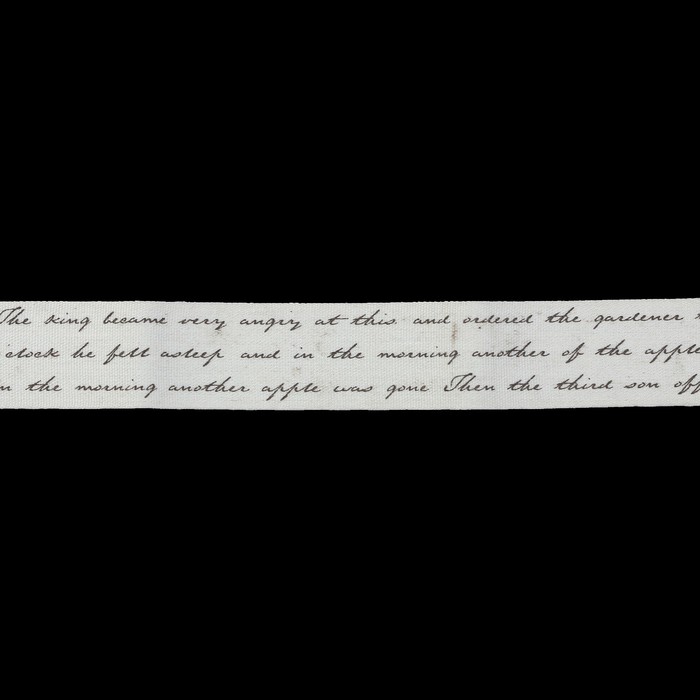 The king became very angry at this and ordered the gardener
clock he fell asleep and in the morning another of the apple
the morning another apple was gone Then the third son off